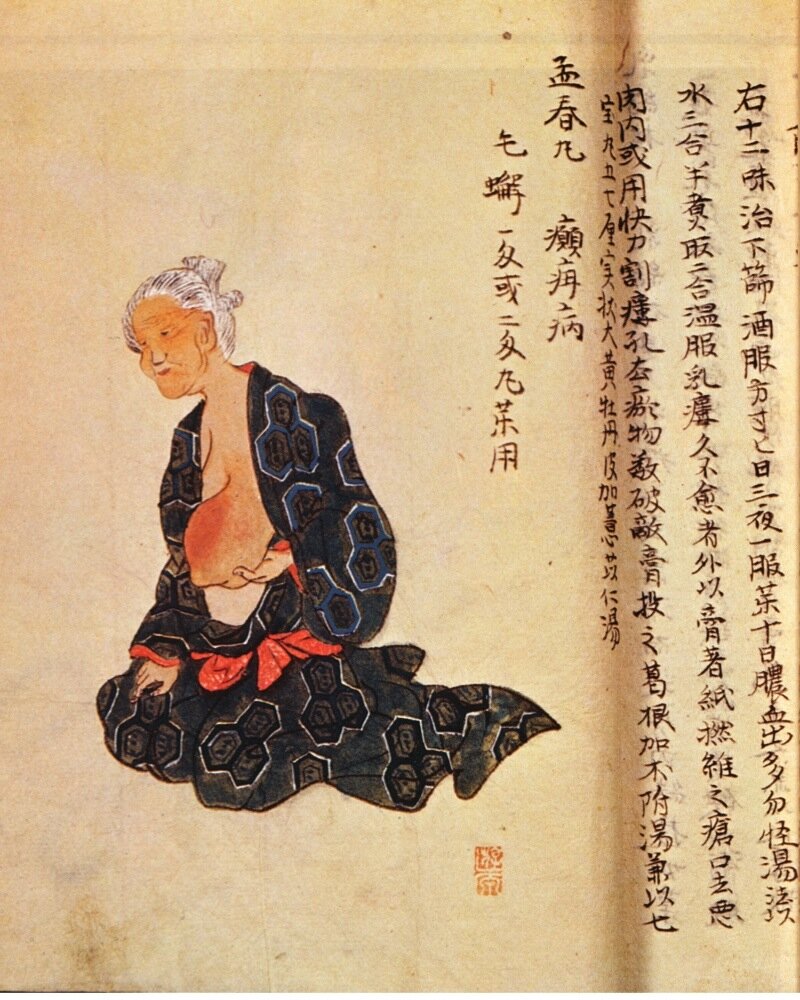 右十二味治下篩酒服方寸匕日三夜一服菜十日膿血出多勿怪湯法以
水三合半煮取二合温服乳癰久不愈者外以膏著紙撚維之瘡口去悪
肉内或用快刀割瘻孔去瘀物敷破敵膏投之葛根加朮附湯兼以七
宝丸五七厘実状大黄牡丹皮加薏苡仁湯
孟春丸 癩病
一匁或二匁丸菜用